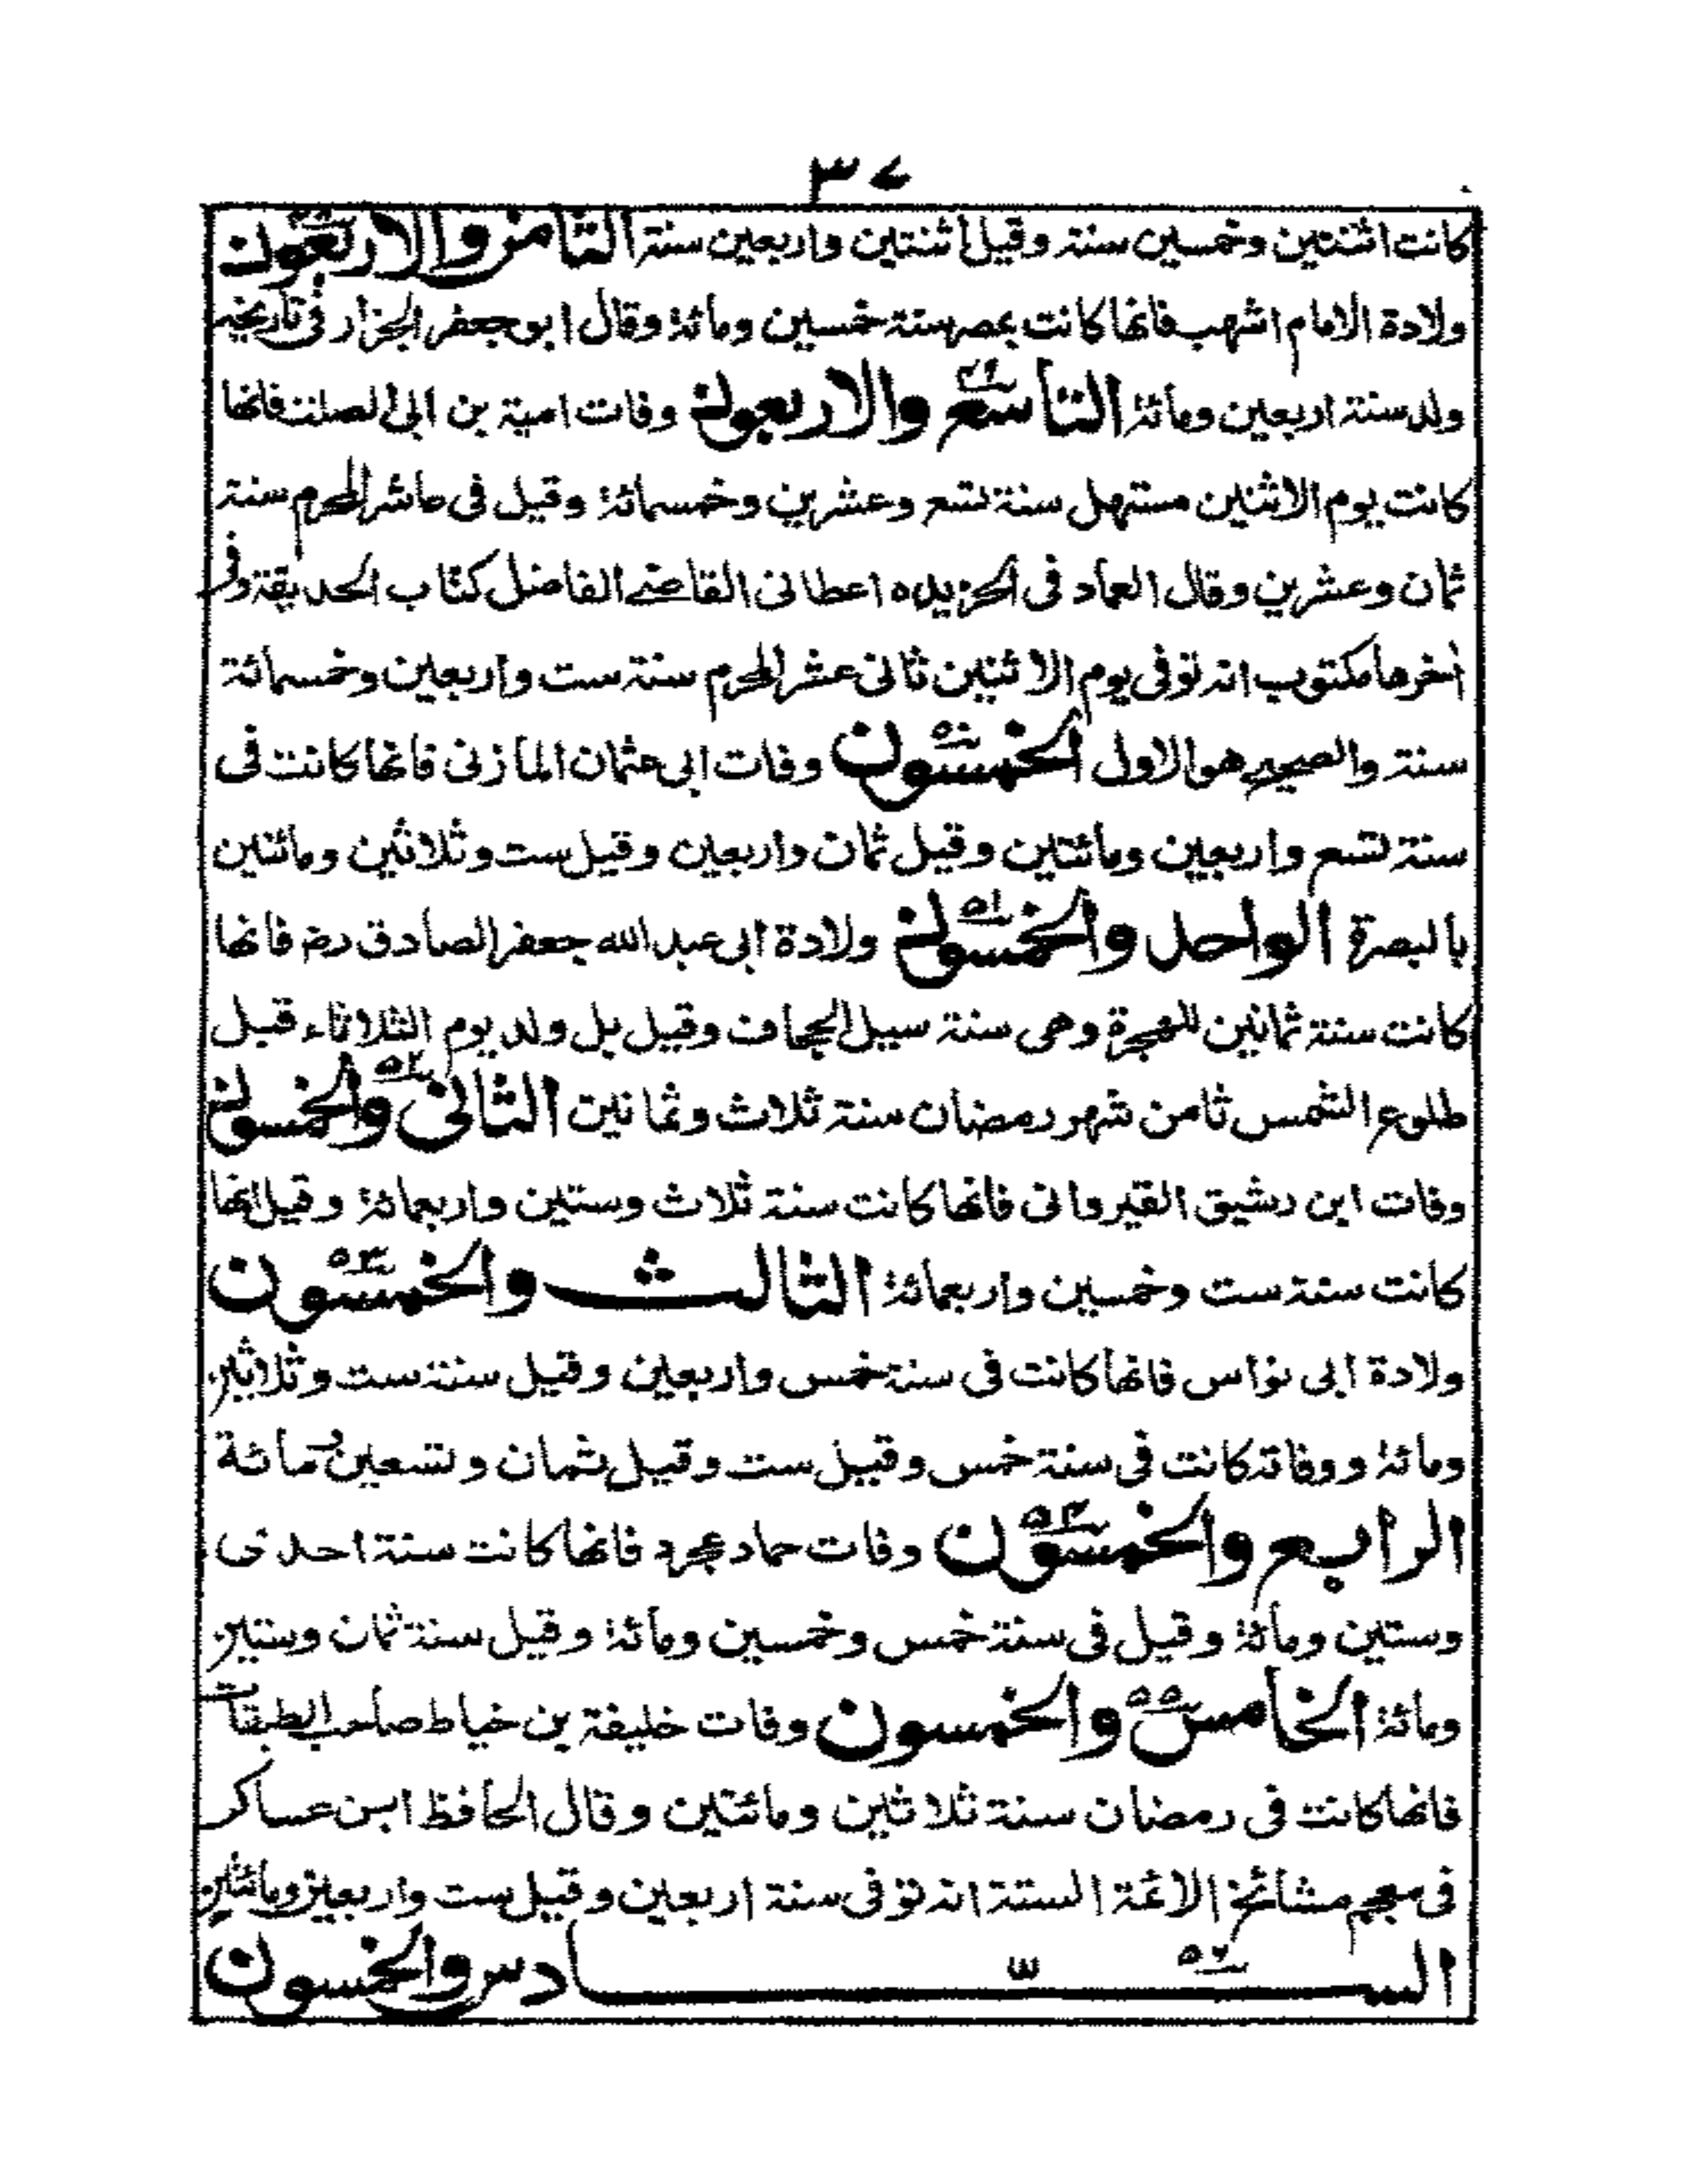 ٣٧
كانت اثنتين وخمسين سنة وقيل اثنتين واربعين سنة الثامن والاربعون
ولادة الامام اشهب فانها كانت بمصر سنة خمسين ومائة وقال ابو جعفر الجزار فى تاريخه
ولد سنة اربعين ومائة التاسع والاربعون ٤٩ وفات امية بن ابى الصلت فانها
كانت يوم الاثنين مستهل سنة تسع وعشرين وخمسمائة وقيل فى عاشر المحرم سنة
ثمان وعشرين وقال العماد فى الخريده اعطانى القاضى الفاضل كتاب الحديقة وفى
اخرها مكتوب انه توفى يوم الاثنين ثانى عشر المحرم سنة ست واربعين وخمسمائة
سنة والصحيح هو الاول الخمسون ٥٠ وفات ابى عثمان المازنى فانها كانت فى
سنة تسع واربعين ومائتين وقيل ثمان واربعين وقيل ست وثلاثين ومائتين
بالبصرة الواحد والخمسون ٥١ ولادة ابى عبد الله جعفر الصادق رضـ فانها
كانت سنة ثمانين للهجرة وهى سنة سيل الجحاف وقيل بل ولد يوم الثلاثاء قبل
طلوع الشمس ثامن شهر رمضان سنة ثلاث وثمانين الثانى والخمسون ٥٢
وفات ابن رشيق القيروانى فانها كانت سنة ثلاث وستين واربعمائة وقيل انها
كانت سنة ست وخمسين واربعمائة الثالث والخمسون ٥٣
ولادة ابى نواس فانها كانت فى سنة خمس واربعين وقيل سنة ست وثلاثين
ومائة ووفاته كانت فى سنة خمس وقيل ست وقيل بثمان وتسعين ومائة
الرابع والخمسون ٥٤ وفات حماد عجرد فانها كانت سنة احدى
وستين ومائة وقيل فى سنة خمس وخمسين ومائة وقيل سنة ثمان وستين
ومائة الخامس والخمسون ٥٥ وفات خليفة بن خياط صاحب الطبقات
فانها كانت فى رمضان سنة ثلاثين ومائتين وقال الحافظ ابن عساكر
فى معجم مشائخ الائمة الستة انه توفى سنة اربعين وقيل ست واربعين ومائتين
الســـــادس والخمسون ٥٦